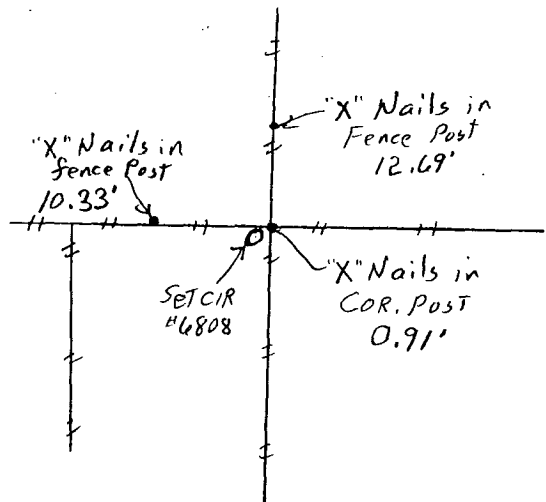 "X" Nails in
Fence Post
12.69'
"X" Nails in
fence Post
10.33'
SET CIR
#6808
"X" Nails in
COR. Post
0.91'